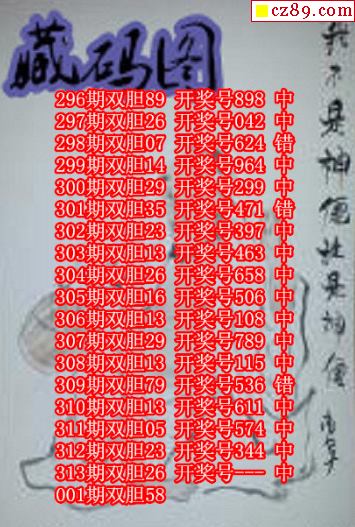 cz89.com
藏码图
我不是神但祉是神僊
296期双胆89 开奖号898 中
297期双胆26 开奖号042 中
298期双胆07 开奖号624 错
299期双胆14 开奖号964 中
300期双胆29 开奖号299 中
301期双胆35 开奖号471 错
302期双胆23 开奖号397 中
303期双胆13 开奖号463 中
304期双胆26 开奖号658 中
305期双胆16 开奖号506 中
306期双胆13 开奖号108 中
307期双胆29 开奖号789 中
308期双胆13 开奖号115 中
309期双胆79 开奖号536 错
310期双胆13 开奖号611 中
311期双胆05 开奖号574 中
312期双胆23 开奖号344 中
313期双胆26 开奖号--- 中
001期双胆58